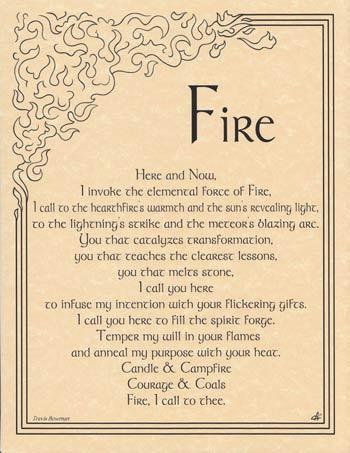 Fire
Here and Now,
I invoke the elemental force of Fire,
I call to the hearthfire's warmth and the sun's revealing light,
to the lightning's strike and the meteor's blazing arc.
You that catalyzes transformation,
you that teaches the clearest lessons,
you that melts stone,
I call you here
to infuse my intention with your flickering gifts.
I call you here to fill the spirit forge.
Temper my will in your flames
and anneal my purpose with your heat.
Candle & Campfire
Courage & Coals
Fire, I call to thee.
Travis Bowman